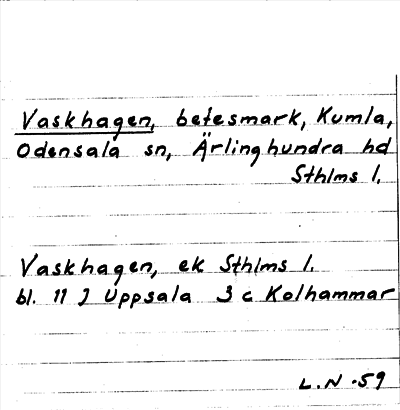 Vaskhagen, betesmark, Kumla,
Odensala sn, Ärlinghundra hd
Sthlms l.
Vaskhagen, ek Sthlms l.
bl. 11 J Uppsala 3 c Kolhammar
L.N -59